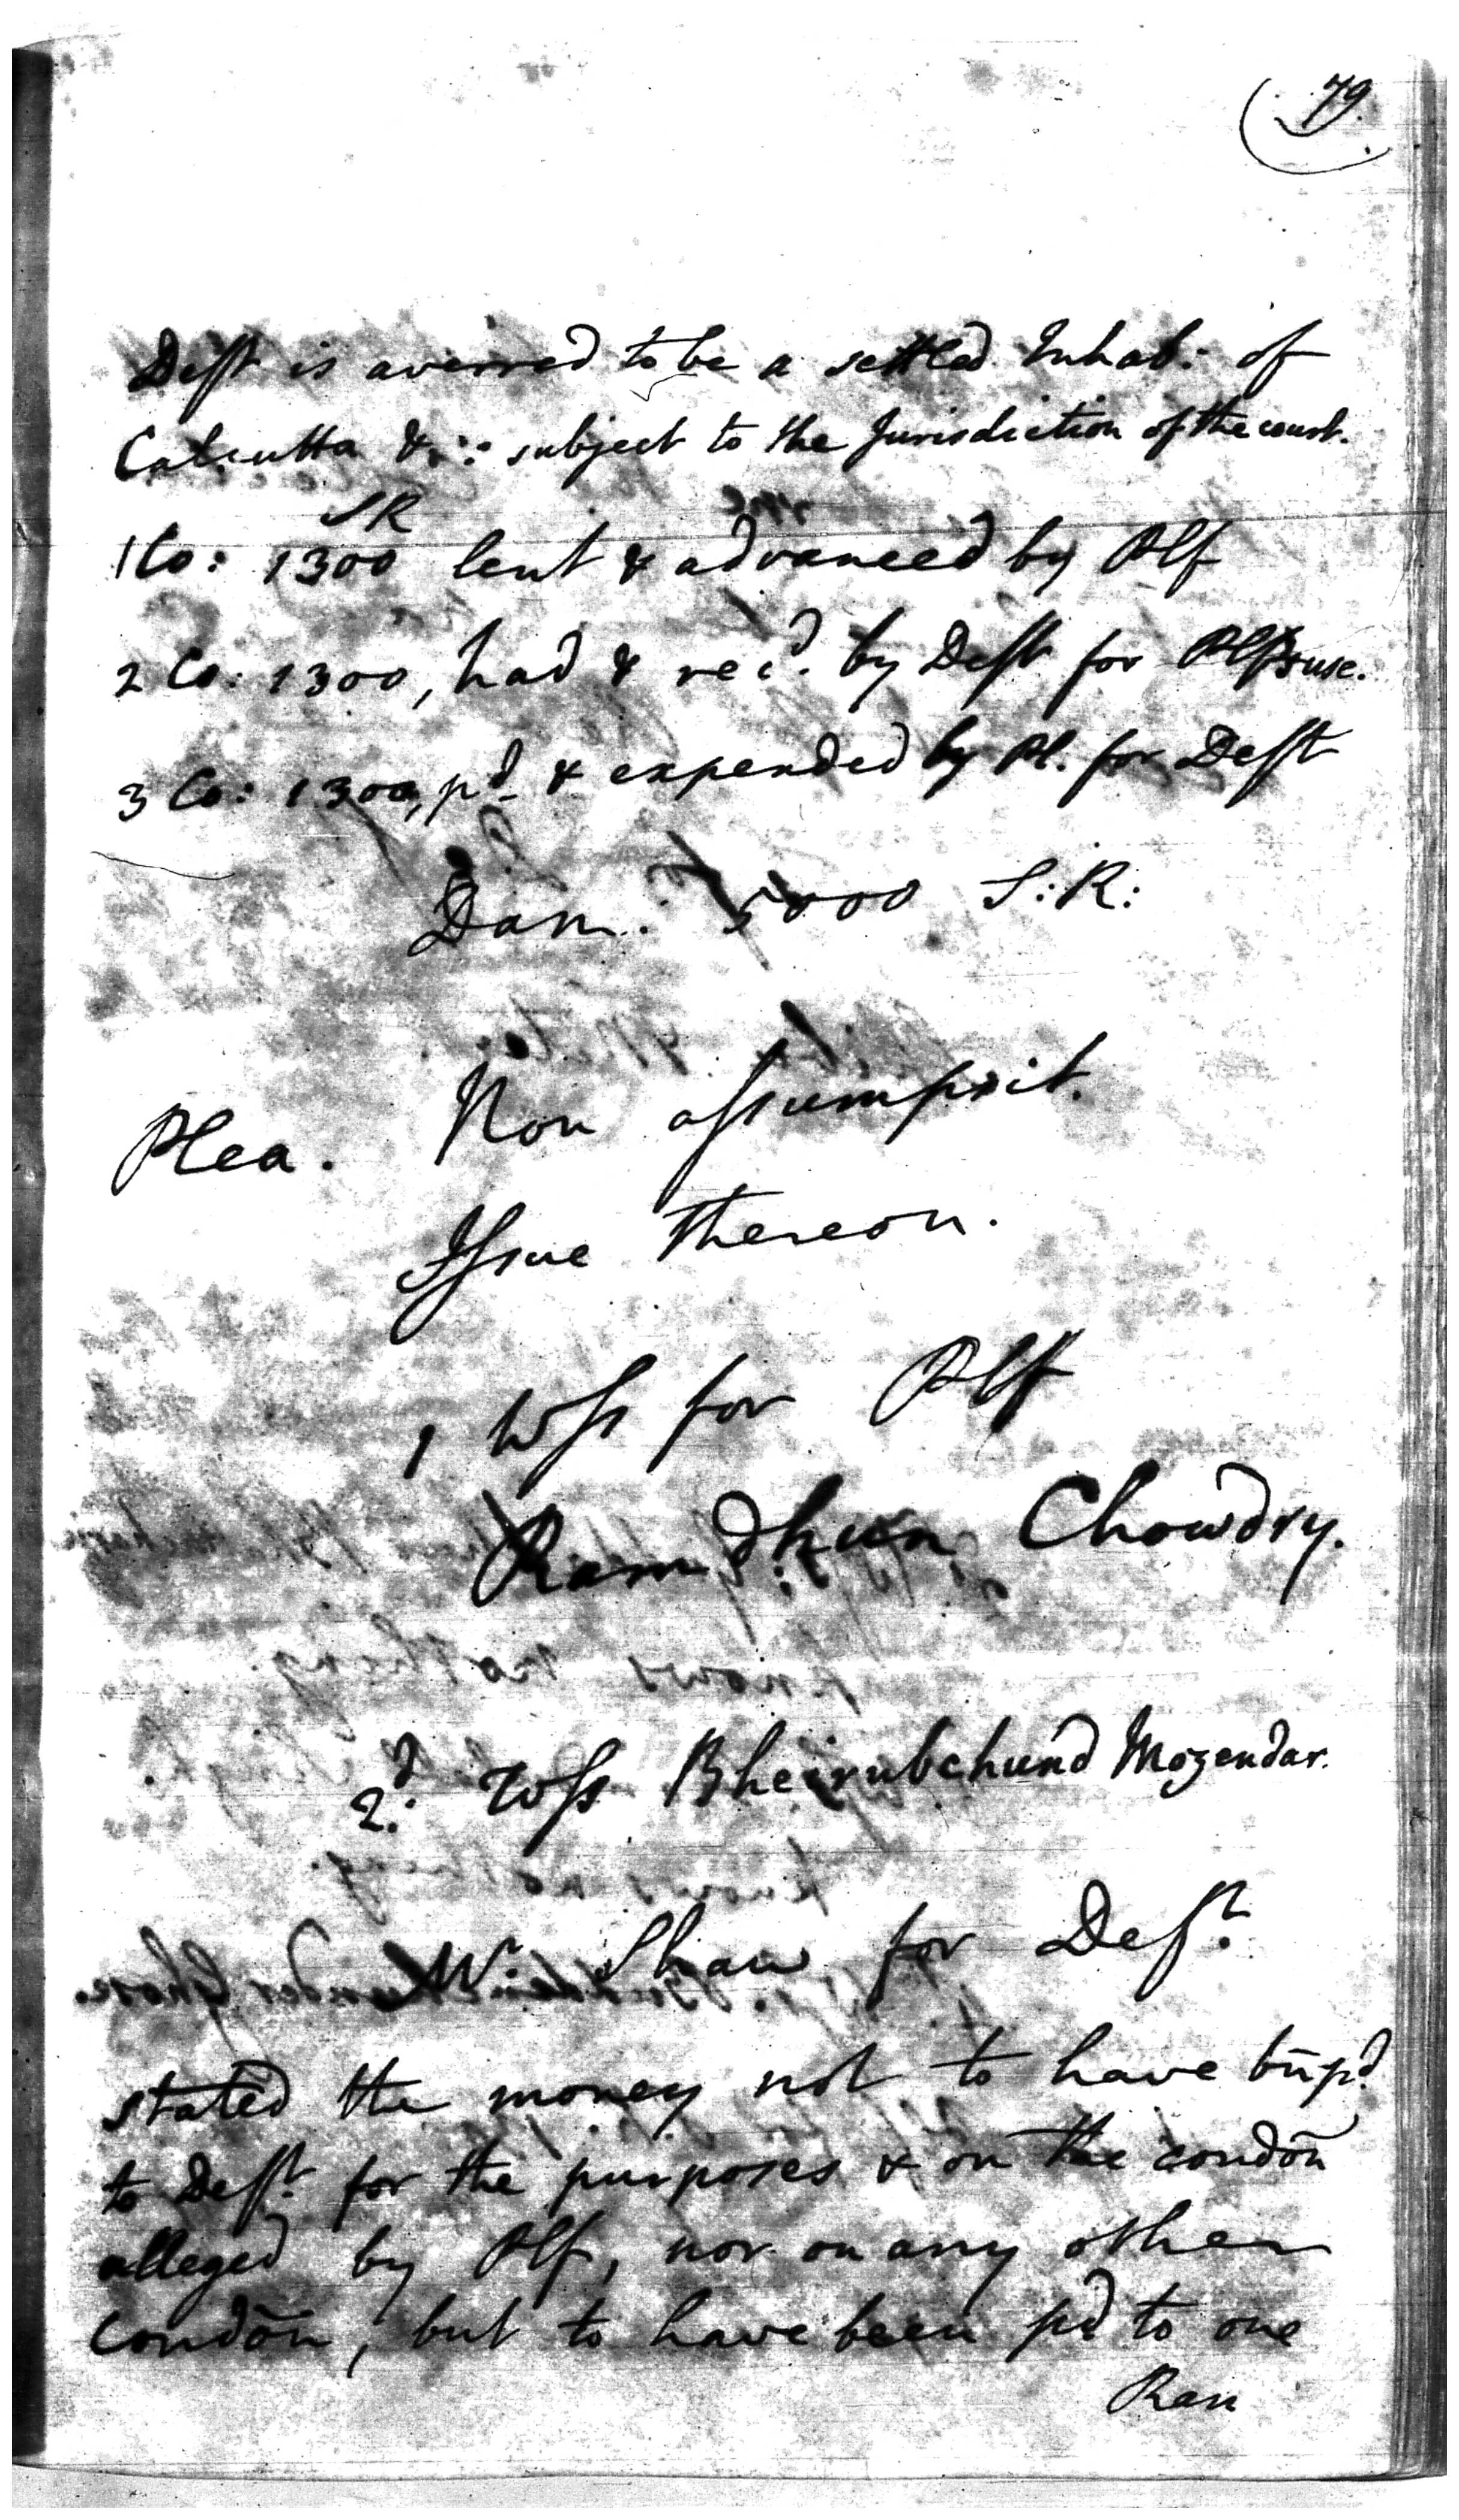 79.
Deft is averred to be a settled Inhab: of
Calcutta & ∴ subject to the Jurisdiction of the court.
SR
1 Co: 1300 lent & advanced by Plf
2 Co: 1300, had & recd. by Deft for Plfs use.
3 Co: 1300, pd & expended by Pl. for Deft
Dam. 5000 S:R:
Plea. Non assumpsit.
Issue thereon.
1 Wss for Plf
Ramdhun Chowdry.
2d. Wss Bheirubchund Mozendar.
Shaw for Deft.
stated the money not to have bn pd
to Deft. for the purposes & on the condōn
alleged by Plf, nor on any other
condōn, but to have been pd to one
Ram